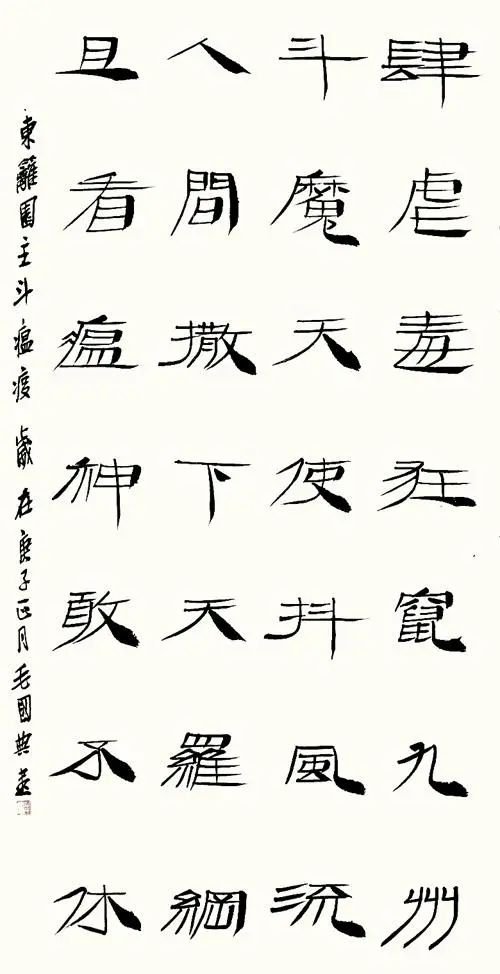 肆虐毒狂竄九州
斗魔天使抖風流
人間撒下天羅綱
且看瘟神敢不休
東籬園主斗瘟疫 歲在庚子正月毛國典